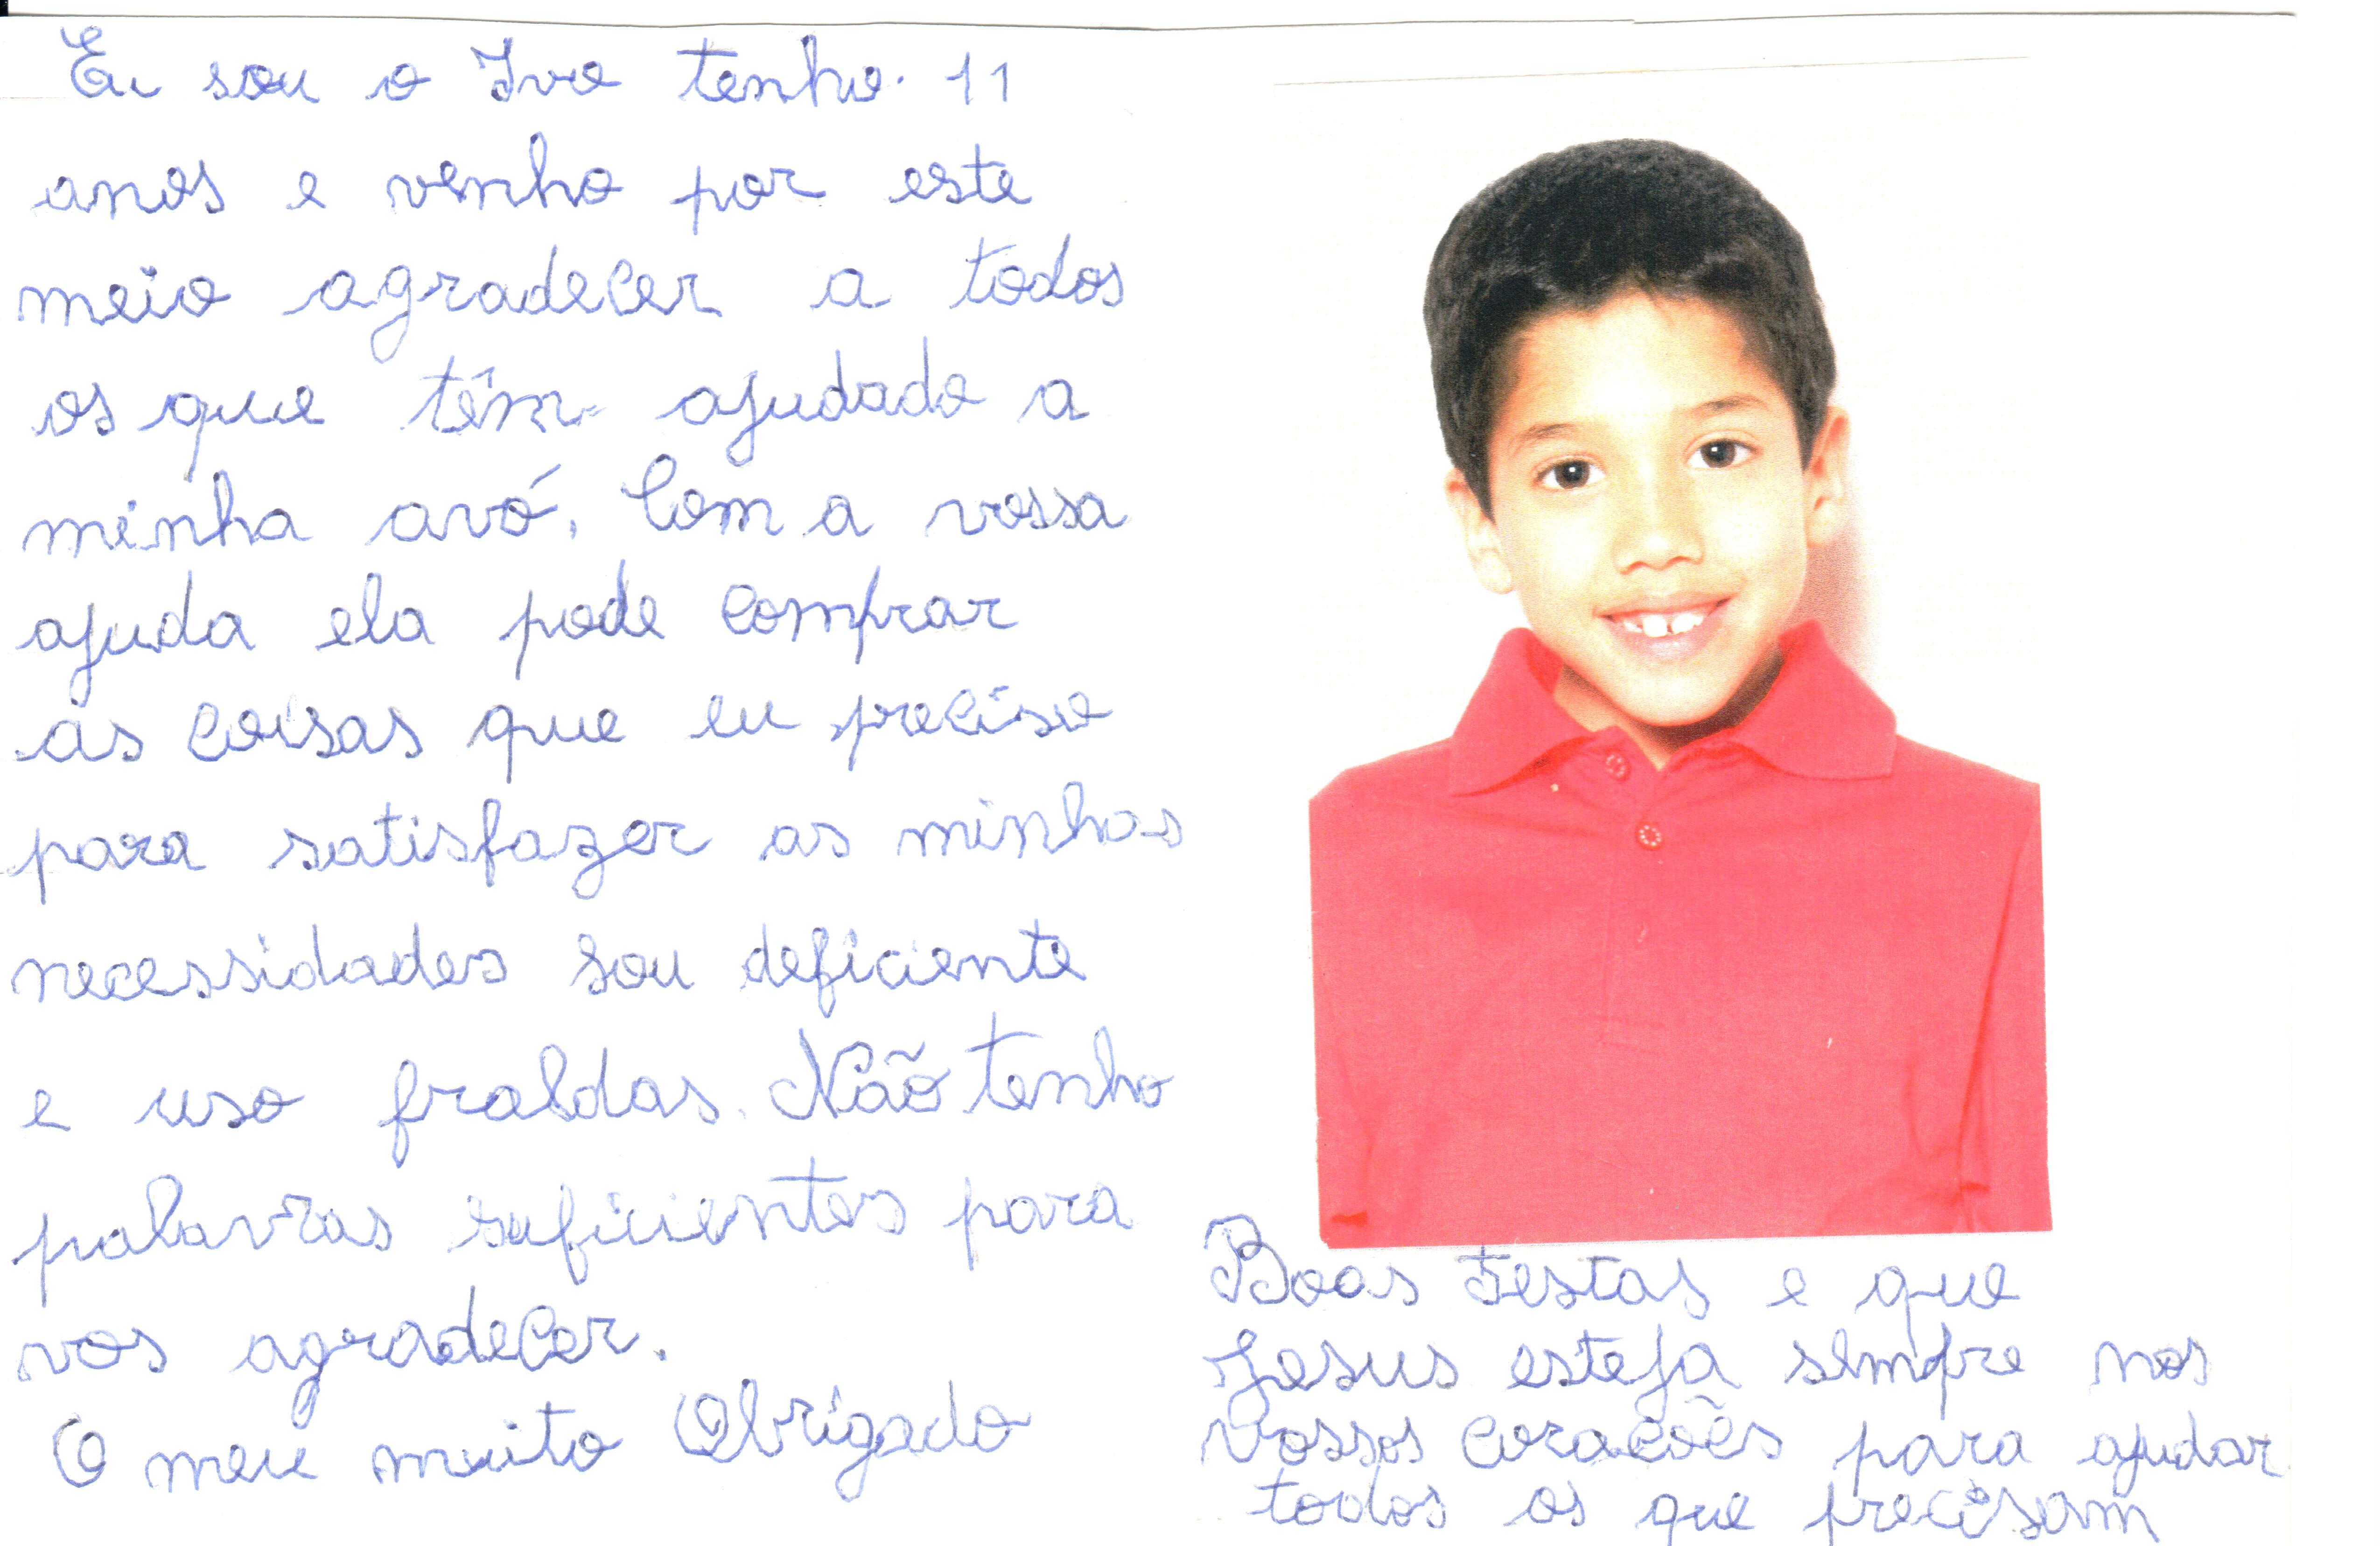 Eu sou o Ivo tenho 11
anos e venho por este
meio agradecer a todos
os que têm ajudado a
minha avó. Com a vossa
ajuda ela pode comprar
as coisas que eu preciso
para satisfazer as minhas
necessidades sou deficiente
e uso fraldas. Não tenho
palavras suficientes para
vos agradecer.
O meu muito Obrigado
Boas Festas e que
Jesus esteja sempre nos
Vossos corações para ajudar
todos os que precisam